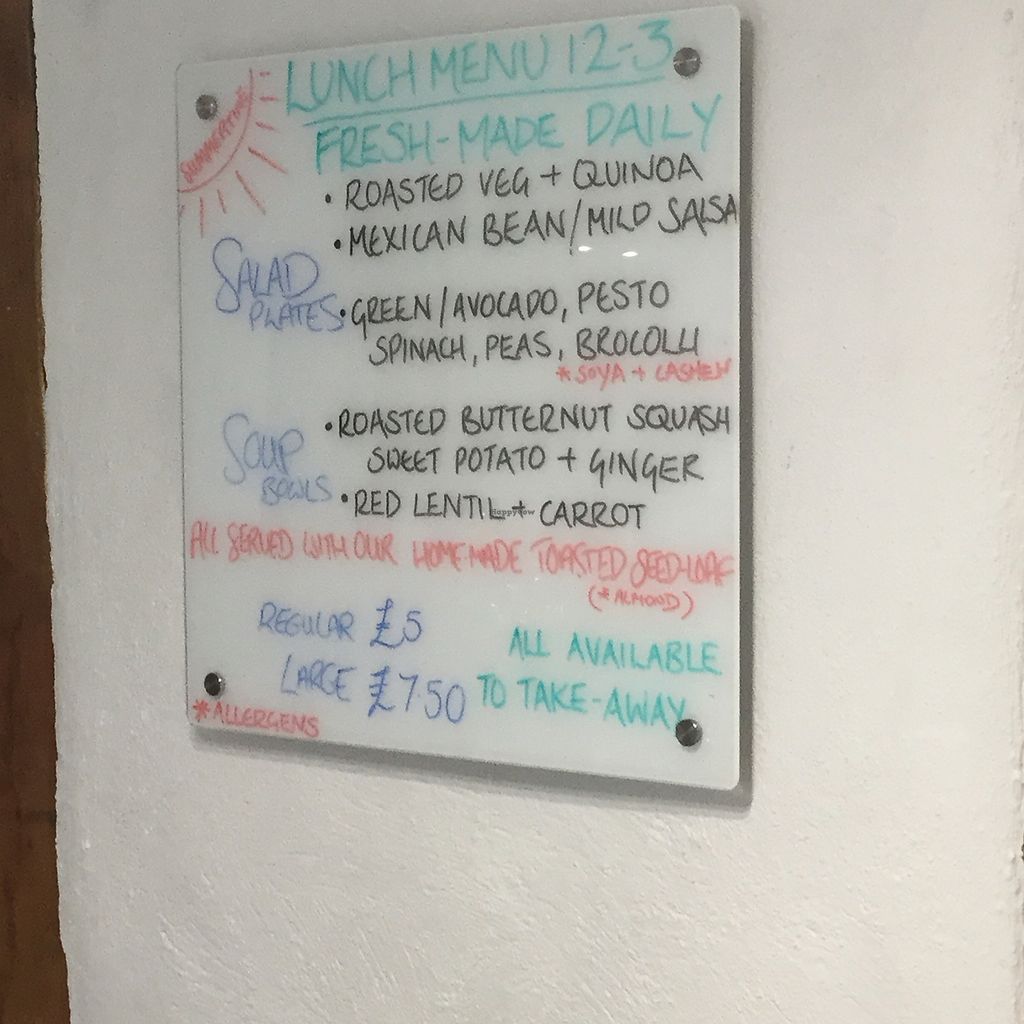 LUNCH MENU 12-3
SUMMERTIME
FRESH-MADE DAILY
• ROASTED VEG + QUINOA
• MEXICAN BEAN/MILD SALSA
SALAD
PLATES
• GREEN/AVOCADO, PESTO
SPINACH, PEAS, BROCOLLI
*SOYA + CASHEW
SOUP
BOWLS
• ROASTED BUTTERNUT SQUASH
SWEET POTATO + GINGER
• RED LENTIL + CARROT
HappyCow
ALL SERVED WITH OUR HOME-MADE TOASTED SEED-LOAF
(*ALMOND)
REGULAR £5
LARGE £7.50
ALL AVAILABLE
TO TAKE-AWAY
*ALLERGENS